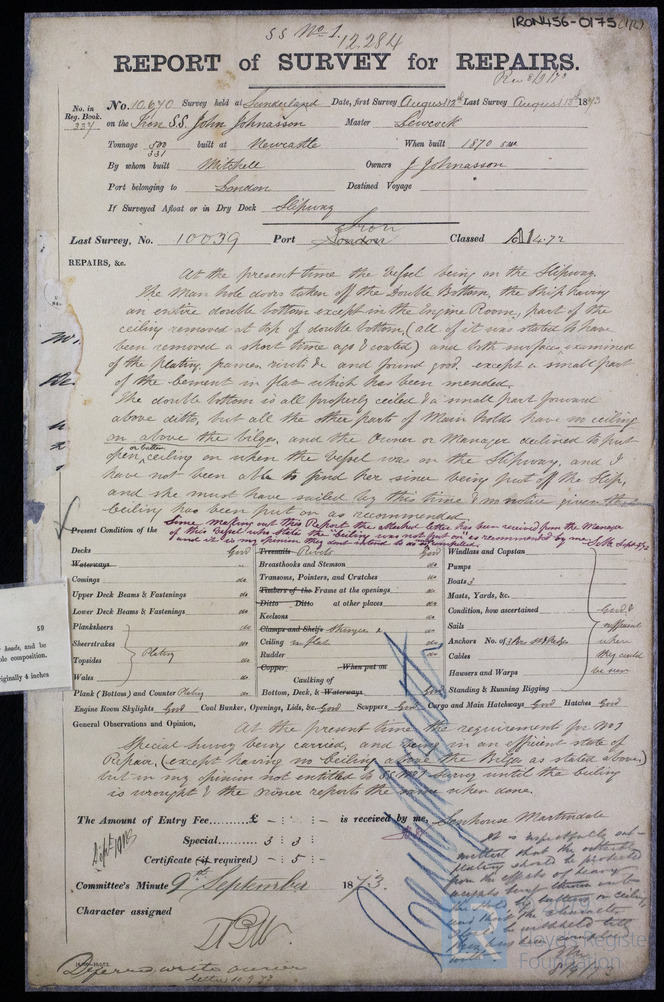 S S No 1.
12.284
IRON456-0175
REPORT of SURVEY for REPAIRS.
No. in Reg. Book. 337
No. 10.670 Survey held at Sunderland Date, first Survey August 12th Last Survey August 18th 1873
on the Iron S.S. John Johnasson Master
Tonnage 500 331 built at Newcastle When built 1870
By whom built Mitchell Owners J Johnasson
Port belonging to London Destined Voyage
If Surveyed Afloat or in Dry Dock Slipway
Iron
Last Survey, No. 10039 Port London Classed A1 4.72
REPAIRS, &c.
At the present time the vessel being on the Slipway.
The Man hole doors taken off the Double Bottom, the ship having
an entire double bottom except in the Engine Room, part of the
ceiling removed at top of double bottom, (all of it was stated to have
been removed a short time ago & coated) and both surfaces examined
of the plating, frames, rivets &c and found good, except a small part
of the cement in flat which has been mended.
The double bottom is all properly ceiled & a small part forward
above ditto, but all the other parts of Main Holds have no ceiling
on above the bilges, and the Owner or Manager declined to put
or batten
open ceiling on when the vessel was on the Slipway, and I
have not been able to find her since being put off the Slip,
and she must have sailed by this time & no notice given
ceiling has been put on as recommended.
Since making out this Report the attached letter has been received from the Manager
of this vessel who state the ceiling was not put on as recommended by me
and it is my opinion they dont intend to
Present Condition of the
Decks Good
Waterways
Comings do
Upper Deck Beams & Fastenings do
Lower Deck Beams & Fastenings do
Plansheers
Sheerstrakes
Topsides
Wales
Plating
do
Plank (Bottom) and Counter Plating do
Treenails Rivets Good
Breasthooks and Stemson do
Transoms, Pointers, and Crutches do
Timbers of the Frame at the openings do
Ditto Ditto at other places do
Keelsons do
Clamps and Shelfs Stringers do
Ceiling in flat do
Rudder do
Copper When put on
Caulking of
Bottom, Deck, & Waterways Good
Windlass and Capstan
Pumps
Boats 3
Masts, Yards, &c.
Condition, how ascertained
Sails
Anchors No. of 3
Cables
Hausers and Warps
Standing & Running Rigging
Good &
sufficient
when
they could
be seen
Engine Room Skylights Good Coal Bunker, Openings, Lids, &c. Good Scuppers Good Cargo and Main Hatchways Good Hatches Good
General Observations and Opinion, At the present time the requirements for No 1
Special Survey being carried, and being in an efficient state of
Repair, (except having no Ceiling above the Bilges as stated above,)
but in my opinion not entitled to S.S. No 1 Survey until the ceiling
is wrought & the owner reports the same when done.
The Amount of Entry Fee......... £ - : - : - is received by me,
Special....... 3 : 3 :
Certificate (if required) - : 5 : -
Senhouse Martindale
It is respectfully sub-
mitted that the outside
plating should be protected
from the effects of heavy
Committee's Minute 9th September 1873.
Character assigned
Deferred write owner
letter 10.9.73
8/9/73
Lloyd's Register
Foundation
59
heads, and be
ole composition.
riginally 4 inches